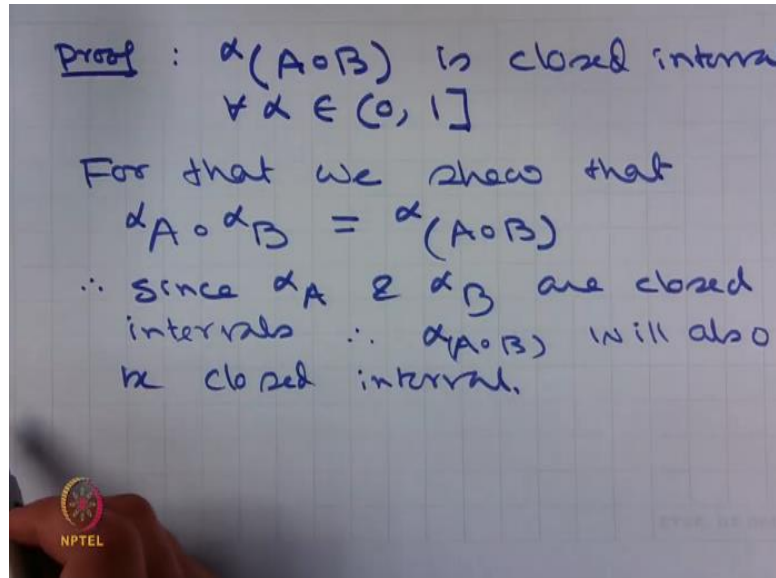 Proof : α(A∘B) is closed interva
∀ α ∈ (0, 1]
For that we show that
αA ∘ αB = α(A∘B)
∴ since αA & αB are closed
intervals ∴ α(A∘B) will also
be closed interval.
NPTEL